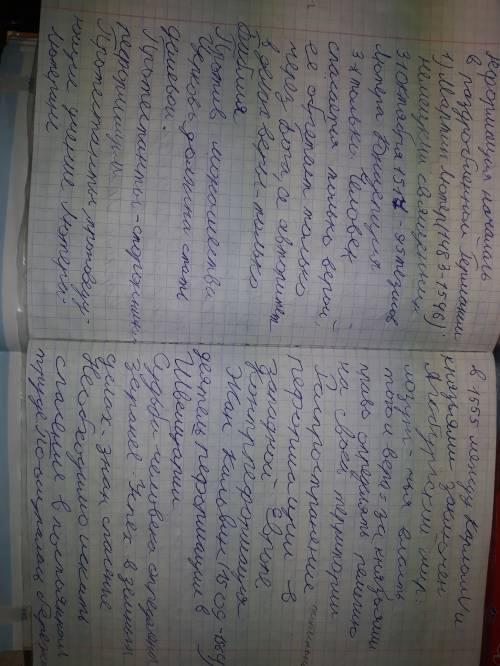 Реформация началась
в раздробленной Германии
1) Мартин Лютер (1483-1546)
немецкий священник
31 октября 1517 - 95 тезисов
Лютера. Концепция
3х только: человек
спасается только верой,
её обретает только
через Бога, а авторитет
в деле веры - только
Библия
Против монашества
Церковь должна стать
дешевой.
Протестанты - сторонники
реформации
Протестанты,
ющие учение Лютера,
Лютеране
В 1555 между Карлом V и
князьями заключен
Аугсбургский мир:
чья власть
того и вера - за князьями
право определять религию
на своей территории
Распространение
реформации в
Западной Европе.
Контрреформация
Жан Кальвин (1509-1564)
деятель реформации в
Швейцарии
Судьба человека определена
заранее. Успех в земных
делах знак спасения
Необходимо искать
спасения в постоянном
труде